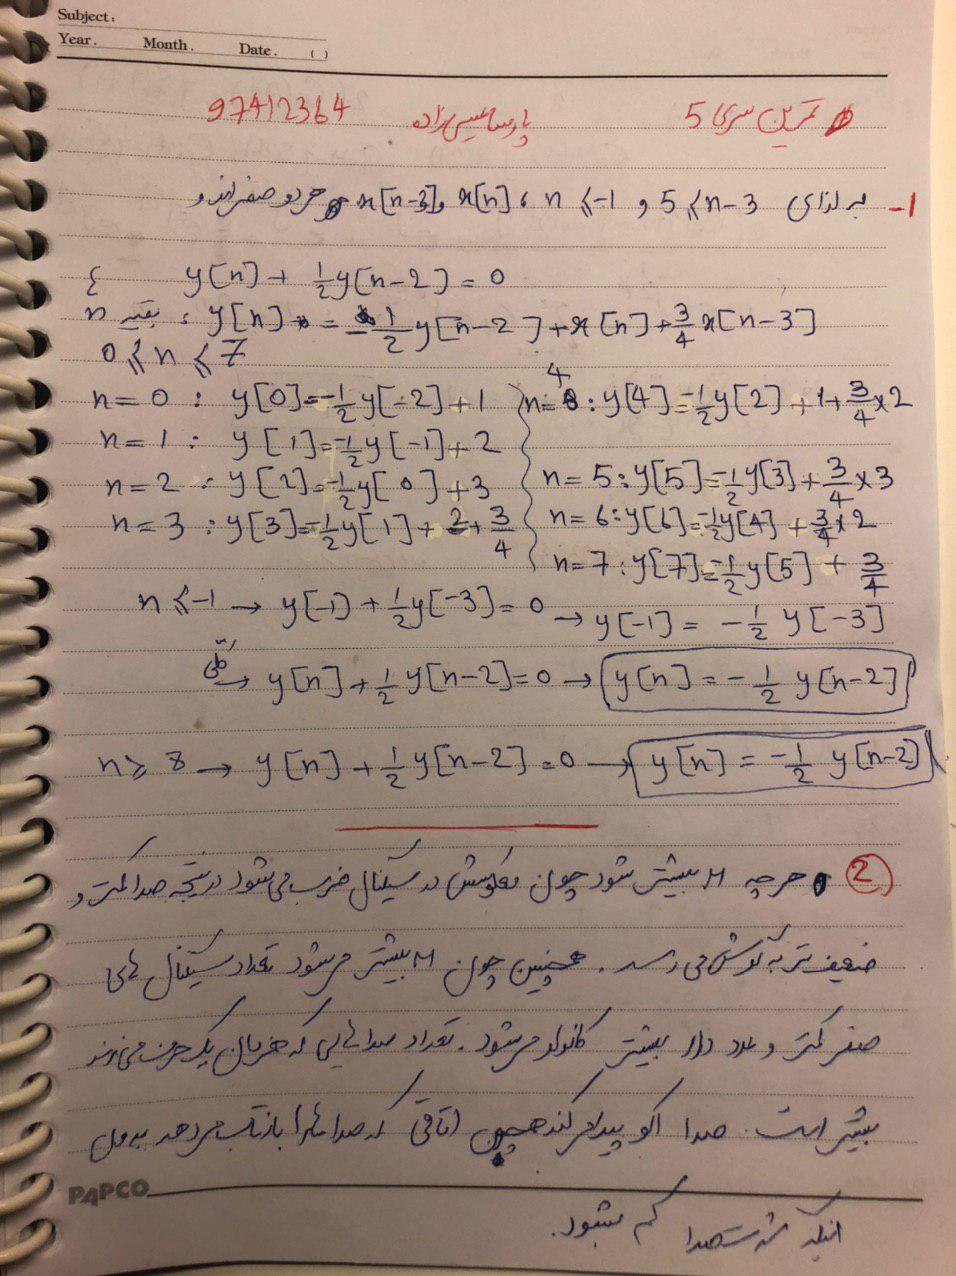 Subject:
Year. Month. Date. ( )
تمرین سری 5 پارسا عیسی زاده 97412364
1- به ازای 5 ⩽ n-3 و n ⩽ -1 ، x[n] و x[n-3] هر دو صفراند و
y[n] + 1/2 y[n-2] = 0
بقیه n : y[n] = -1/2 y[n-2] + x[n] + 3/4 x[n-3]
0 ⩽ n ⩽ 7
n=0 : y[0] = -1/2 y[-2] + 1
n=1 : y[1] = -1/2 y[-1] + 2
n=2 : y[2] = -1/2 y[0] + 3
n=3 : y[3] = -1/2 y[1] + 2 + 3/4
n=4 : y[4] = -1/2 y[2] + 1 + 3/4 × 2
n=5 : y[5] = -1/2 y[3] + 3/4 × 3
n=6 : y[6] = -1/2 y[4] + 3/4 × 2
n=7 : y[7] = -1/2 y[5] + 3/4
n ⩽ -1 → y[-1) + 1/2 y[-3] = 0 → y[-1] = - 1/2 y[-3]
→ y[n] + 1/2 y[n-2] = 0 → y[n] = - 1/2 y[n-2]
n ⩾ 8 → y[n] + 1/2 y[n-2] = 0 → y[n] = - 1/2 y[n-2]
2 هرچه M بیشتر شود چون معکوسش در سیگنال ضرب می شود در نتیجه صدا کمتر و
ضعیف تر به گوش می رسد. همچنین چون M بیشتر می شود تعداد سیگنال های
صفر کمتر و عدد دار بیشتر کانولو می شود. تعداد صداهایی که همزمان یک حرف می زنند
بیشتر است. صدا اکو پیدا می کند همچون اتاقی که صداها را بازتاب می دهد به دلیل
اینکه شدت صدا کم بشود.
PAPCO